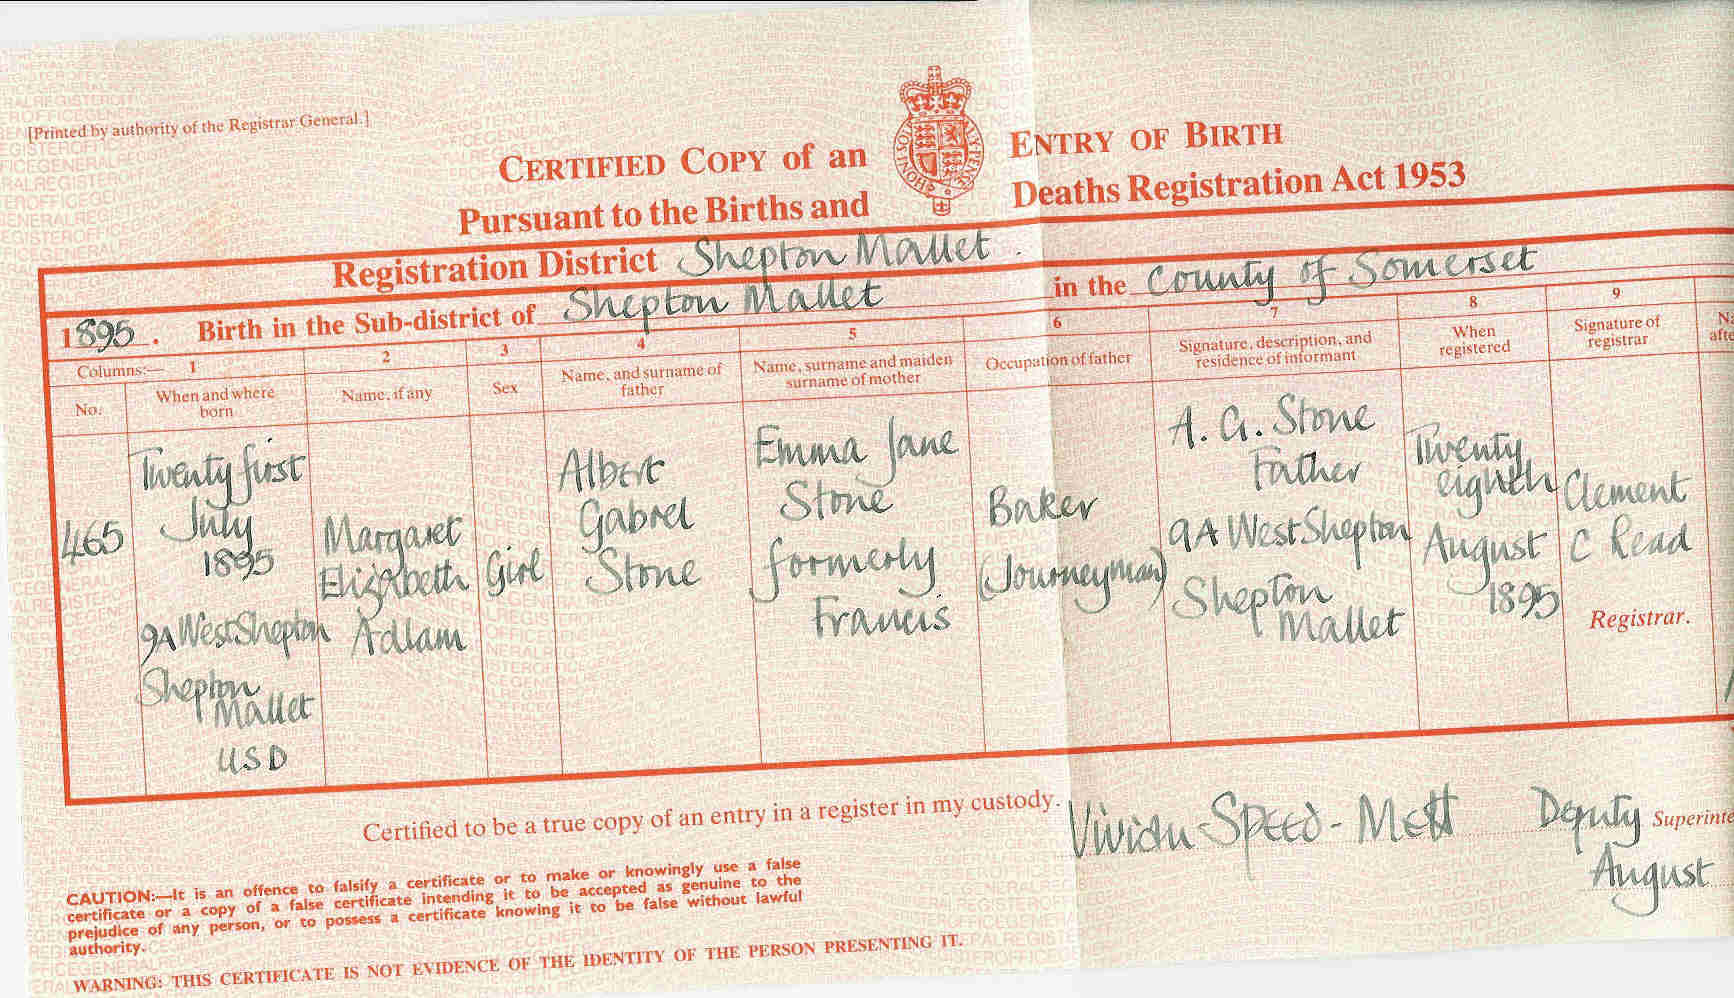 [Printed by authority of the Registrar General.]
CERTIFIED COPY of an ENTRY OF BIRTH
Pursuant to the Births and Deaths Registration Act 1953
HONI SOIT
Registration District Shepton Mallet.
1895. Birth in the Sub-district of Shepton Mallet in the County of Somerset
Columns:— 1 2 3 4 5 6 7 8 9
No.
When and where
born
Name, if any
Sex
Name, and surname of
father
Name, surname and maiden
surname of mother
Occupation of father
Signature, description, and
residence of informant
When
registered
Signature of
registrar
465
Twenty first
July
1895
9A West Shepton
Shepton
Mallet
USD
Margaret
Elizabeth
Adlam
Girl
Albert
Gabrel
Stone
Emma Jane
Stone
formerly
Francis
Baker
(Journeyman)
A. G. Stone
Father
9A West Shepton
Shepton
Mallet
Twenty
eighth
August
1895
Clement
C Read
Registrar.
Certified to be a true copy of an entry in a register in my custody.
Deputy Superinte
August
CAUTION:—It is an offence to falsify a certificate or to make or knowingly use a false
certificate or a copy of a false certificate intending it to be accepted as genuine to the
prejudice of any person, or to possess a certificate knowing it to be false without lawful
authority.
WARNING: THIS CERTIFICATE IS NOT EVIDENCE OF THE IDENTITY OF THE PERSON PRESENTING IT.